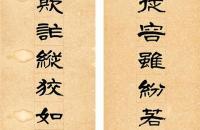 從容雖紛若
欺詐縱狡如